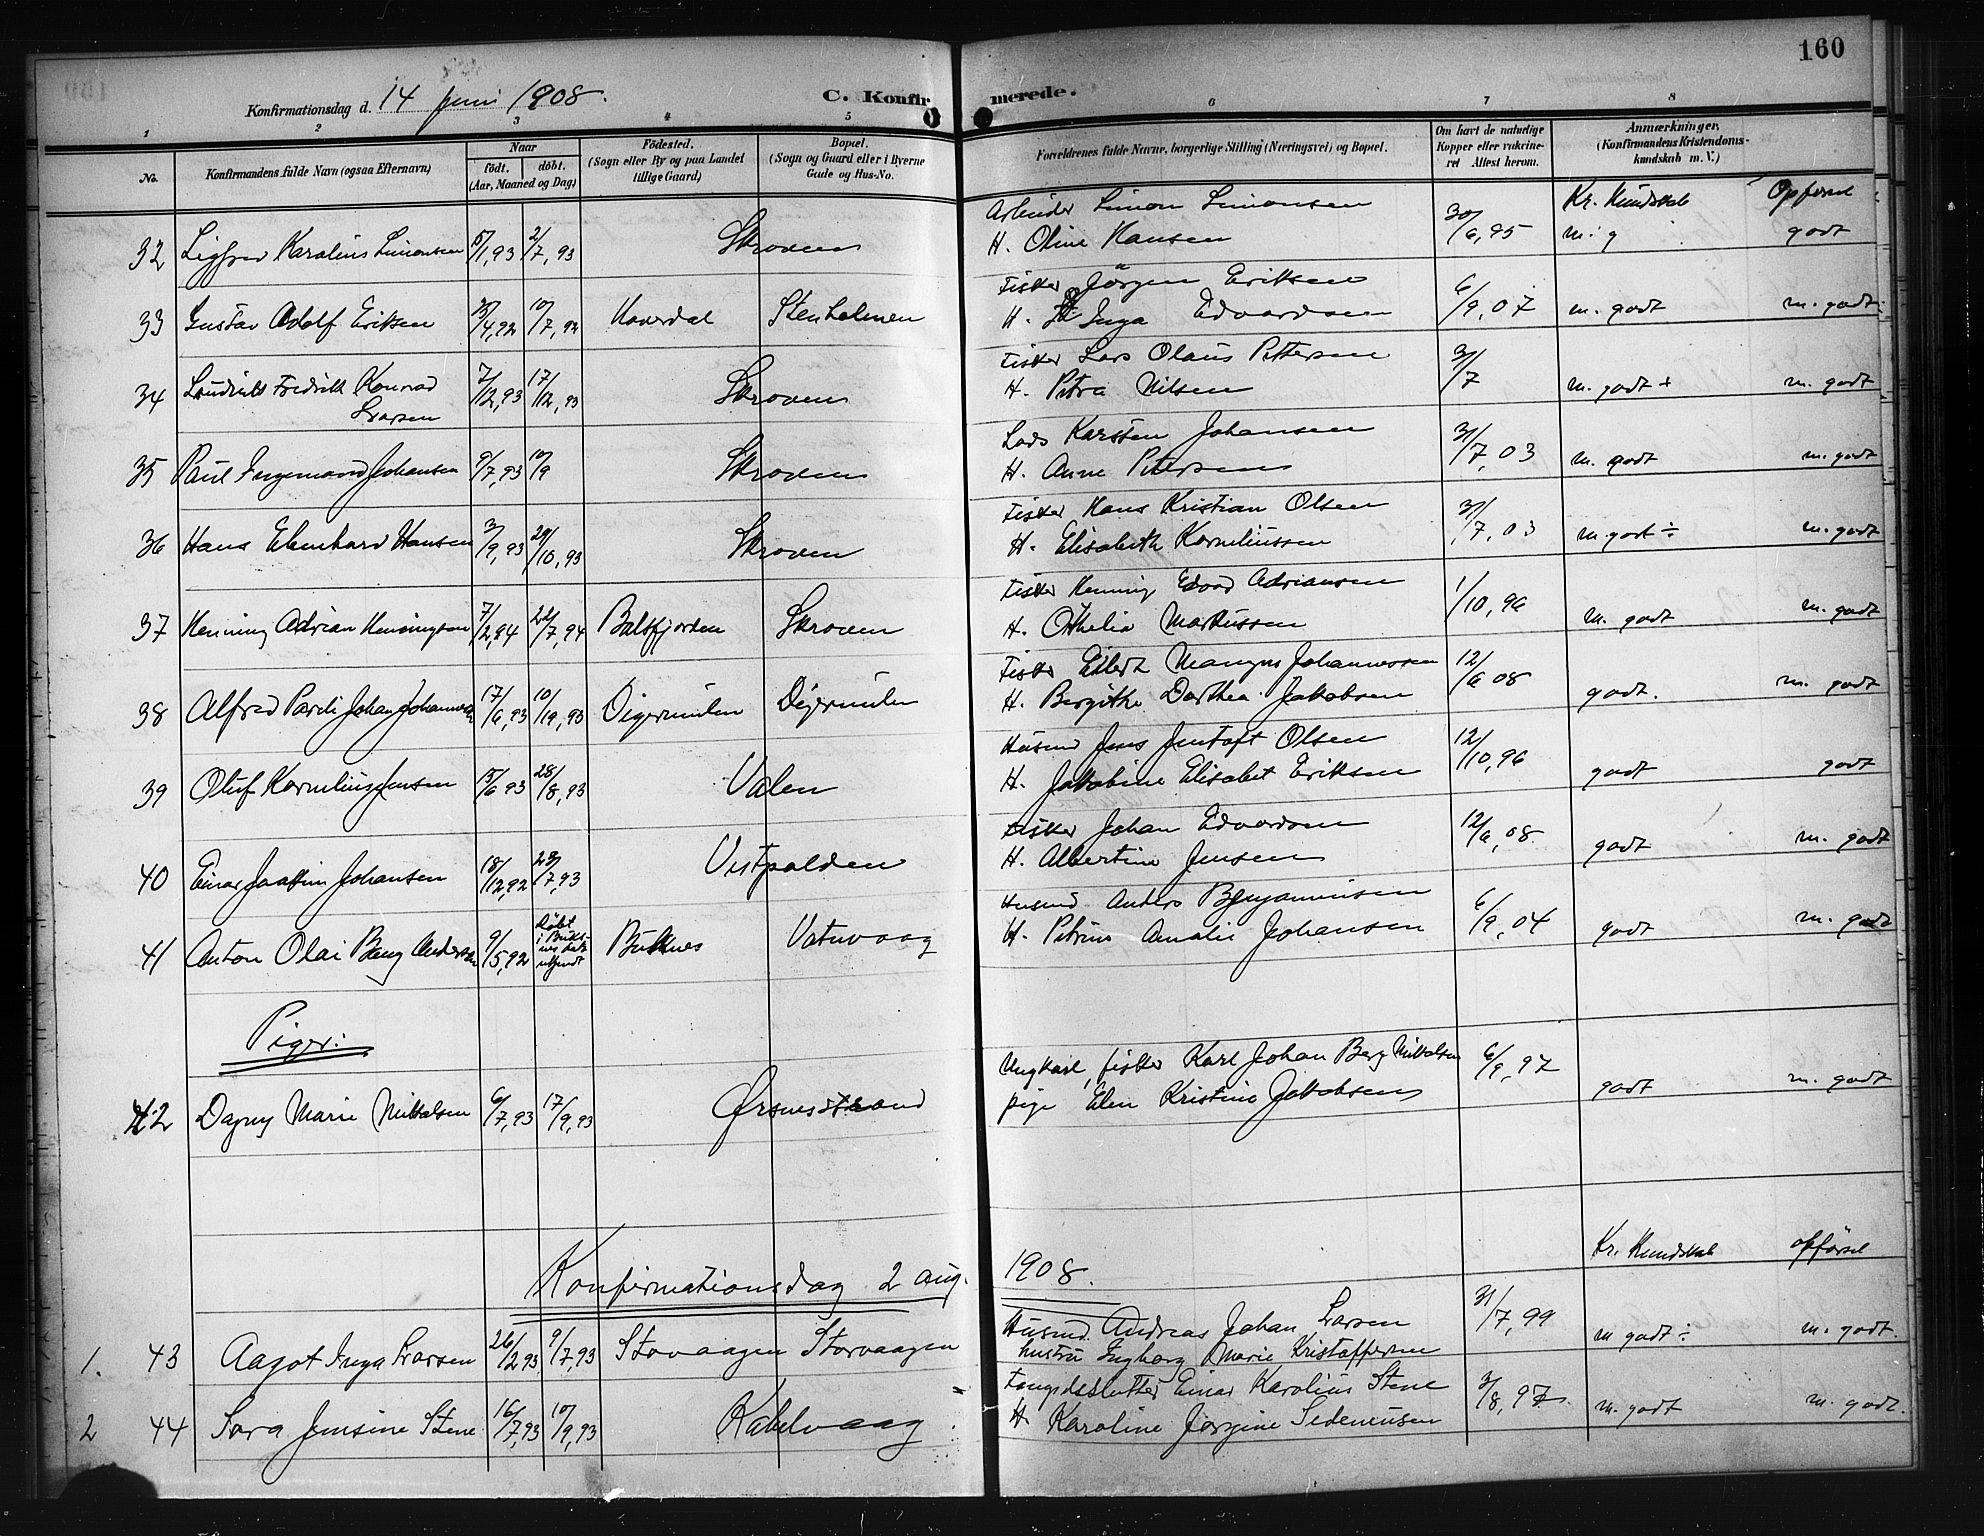 160
Konfirmationsdag d. 14 juni 1908.
C. Konfirmerede.
1 2 3 4 5 6 7 8
No. Konfirmandens fulde Navn (ogsaa Efternavn) Naar født. døbt. (Aar, Maaned og Dag) Fødested. (Sogn eller By og paa Landet tillige Gaard) Bopæl. (Sogn og Gaard eller i Byerne Gade og Hus-No. Forældrenes fulde Navne, borgerlige Stilling (Næringsvei) og Bopæl. Om havt de naturlige Kopper eller vakcineret Attest herom. Anmærkninger. (Konfirmandens Kristendomskundskab m. V.)
Kr. Kundskab Opførsel
Arbeider Simon Simonsen
32 Sigfred Karolius Simonsen 5/1,93 2/7,93 Skroven H. Oline Hansen 30/6,95 m. g godt
Fisker Jörgen Eriksen
33 Gustav Adolf Eriksen 4,92 10/7,92 Haverdal Stenholmen H. Inga Edvardsen 6/9,07 m. godt m. godt
Fisker Lars Olaus Pettersen
34 Fredrik Konrad Larsen 7/12,93 17/12,93 Skroven H. Petra Nilsen 31/7 m. godt + m. godt
Lods Karsten Johansen
35 Paul Ingemand Johansen 9/7,93 10/9 Skroven H. Anne Petersen 31/7,03 m. godt m. godt
Fisker Hans Kristian Olsen
36 Hans Eberhard Hansen 3/9,93 29/10,93 Skroven H. Elisabeth Korneliussen 31/7,03 m. godt ÷ m. godt
Fisker Henning Edvard Adriansen
37 Henning Adrian Henningsen 7/2,94 22/7,94 Balsfjorden Skroven H. Othelia Markussen 1/10,96 m. godt m. godt
Fisker Eilert Mangnus Johannessen
38 Alfred Pareli Johan Johannessen 17/6,93 10/ ,93 Digermulen Digermulen H. Birgitte Dorthea Jakobsen 12/6 08 godt. m. godt
Husmd Jens Jentoft Olsen
39 Oluf Kornelius Jensen 15/6 93 28/8,93 Valen H. Jakobine Elisabet Eriksen 12/10,96 godt godt
Fisker Johan Edvardsen
40 Einar Joakim Johansen 18/12,92 23/7,93 Vestpolden H. Albertine Jensen 12/6,08 godt m. godt
Husmd Anders Benjaminsen
41 Anton Olai Berg Andersen 9/5,92 Døbt i Buksnes dat. ukjendt Buksnes Vatervaag H. Petrine Amalie Johansen 6/9,04 godt m. godt
Piger:
Ungkarl, fisker Karl Johan Berg Mikkalsen
42 Dagny Marie Mikkalsen 6/7,93 17/9,93 Ørsnesstrand pige Elen Kristine Jakobsen 6/9,97 godt m. godt
Kr. Kundskab opførsel
Konfirmationsdag 2 aug. 1908.
Husmd. Andreas Johan Larsen
1. 43 Aagot Inga Larsen 26/2,93 9/7,93 Storvaagen Storvaagen hustru Ingborg Marie Kristoffersen 31/7,99 m godt ÷ m. godt.
Fangdslutter Einar Karolius Stene
2 44 Sara Jensine Stene 16/7,93 10/9,93 Kabelvaag H. Karoline Jørgine Sedeniusen 3/8,97 m. godt m. godt.